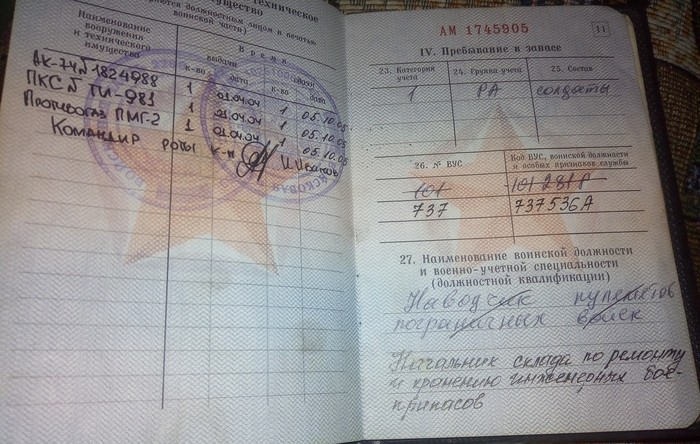 техническое
имущество
(заполняется должностным лицом и печатью
воинской части)
Наименование
вооружения
и технического
имущества
Время
выдачи
сдачи
к-во
дата
к-во
дата
АК-74 № 1824988 1 01.04.04 1 05.10.05
ПКС № ТИ-981 1 01.04.04 1 05.10.05
Противогаз ПМГ-2 1 01.04.04 1 05.10.05
Командир роты к-н
АМ 1745905
11
IV. Пребывание в запасе
23. Категория
учета
24. Группа учета
25. Состав
1 РА солдаты
26. № ВУС
Код ВУС, воинской должности
и особых признаков службы
101
737 737536А
27. Наименование воинской должности
и военно-учетной специальности
(должностной квалификации)
Наводчик пулеметов
пограничных войск
Начальник склада по ремонту
и хранению инженерных бое-
припасов